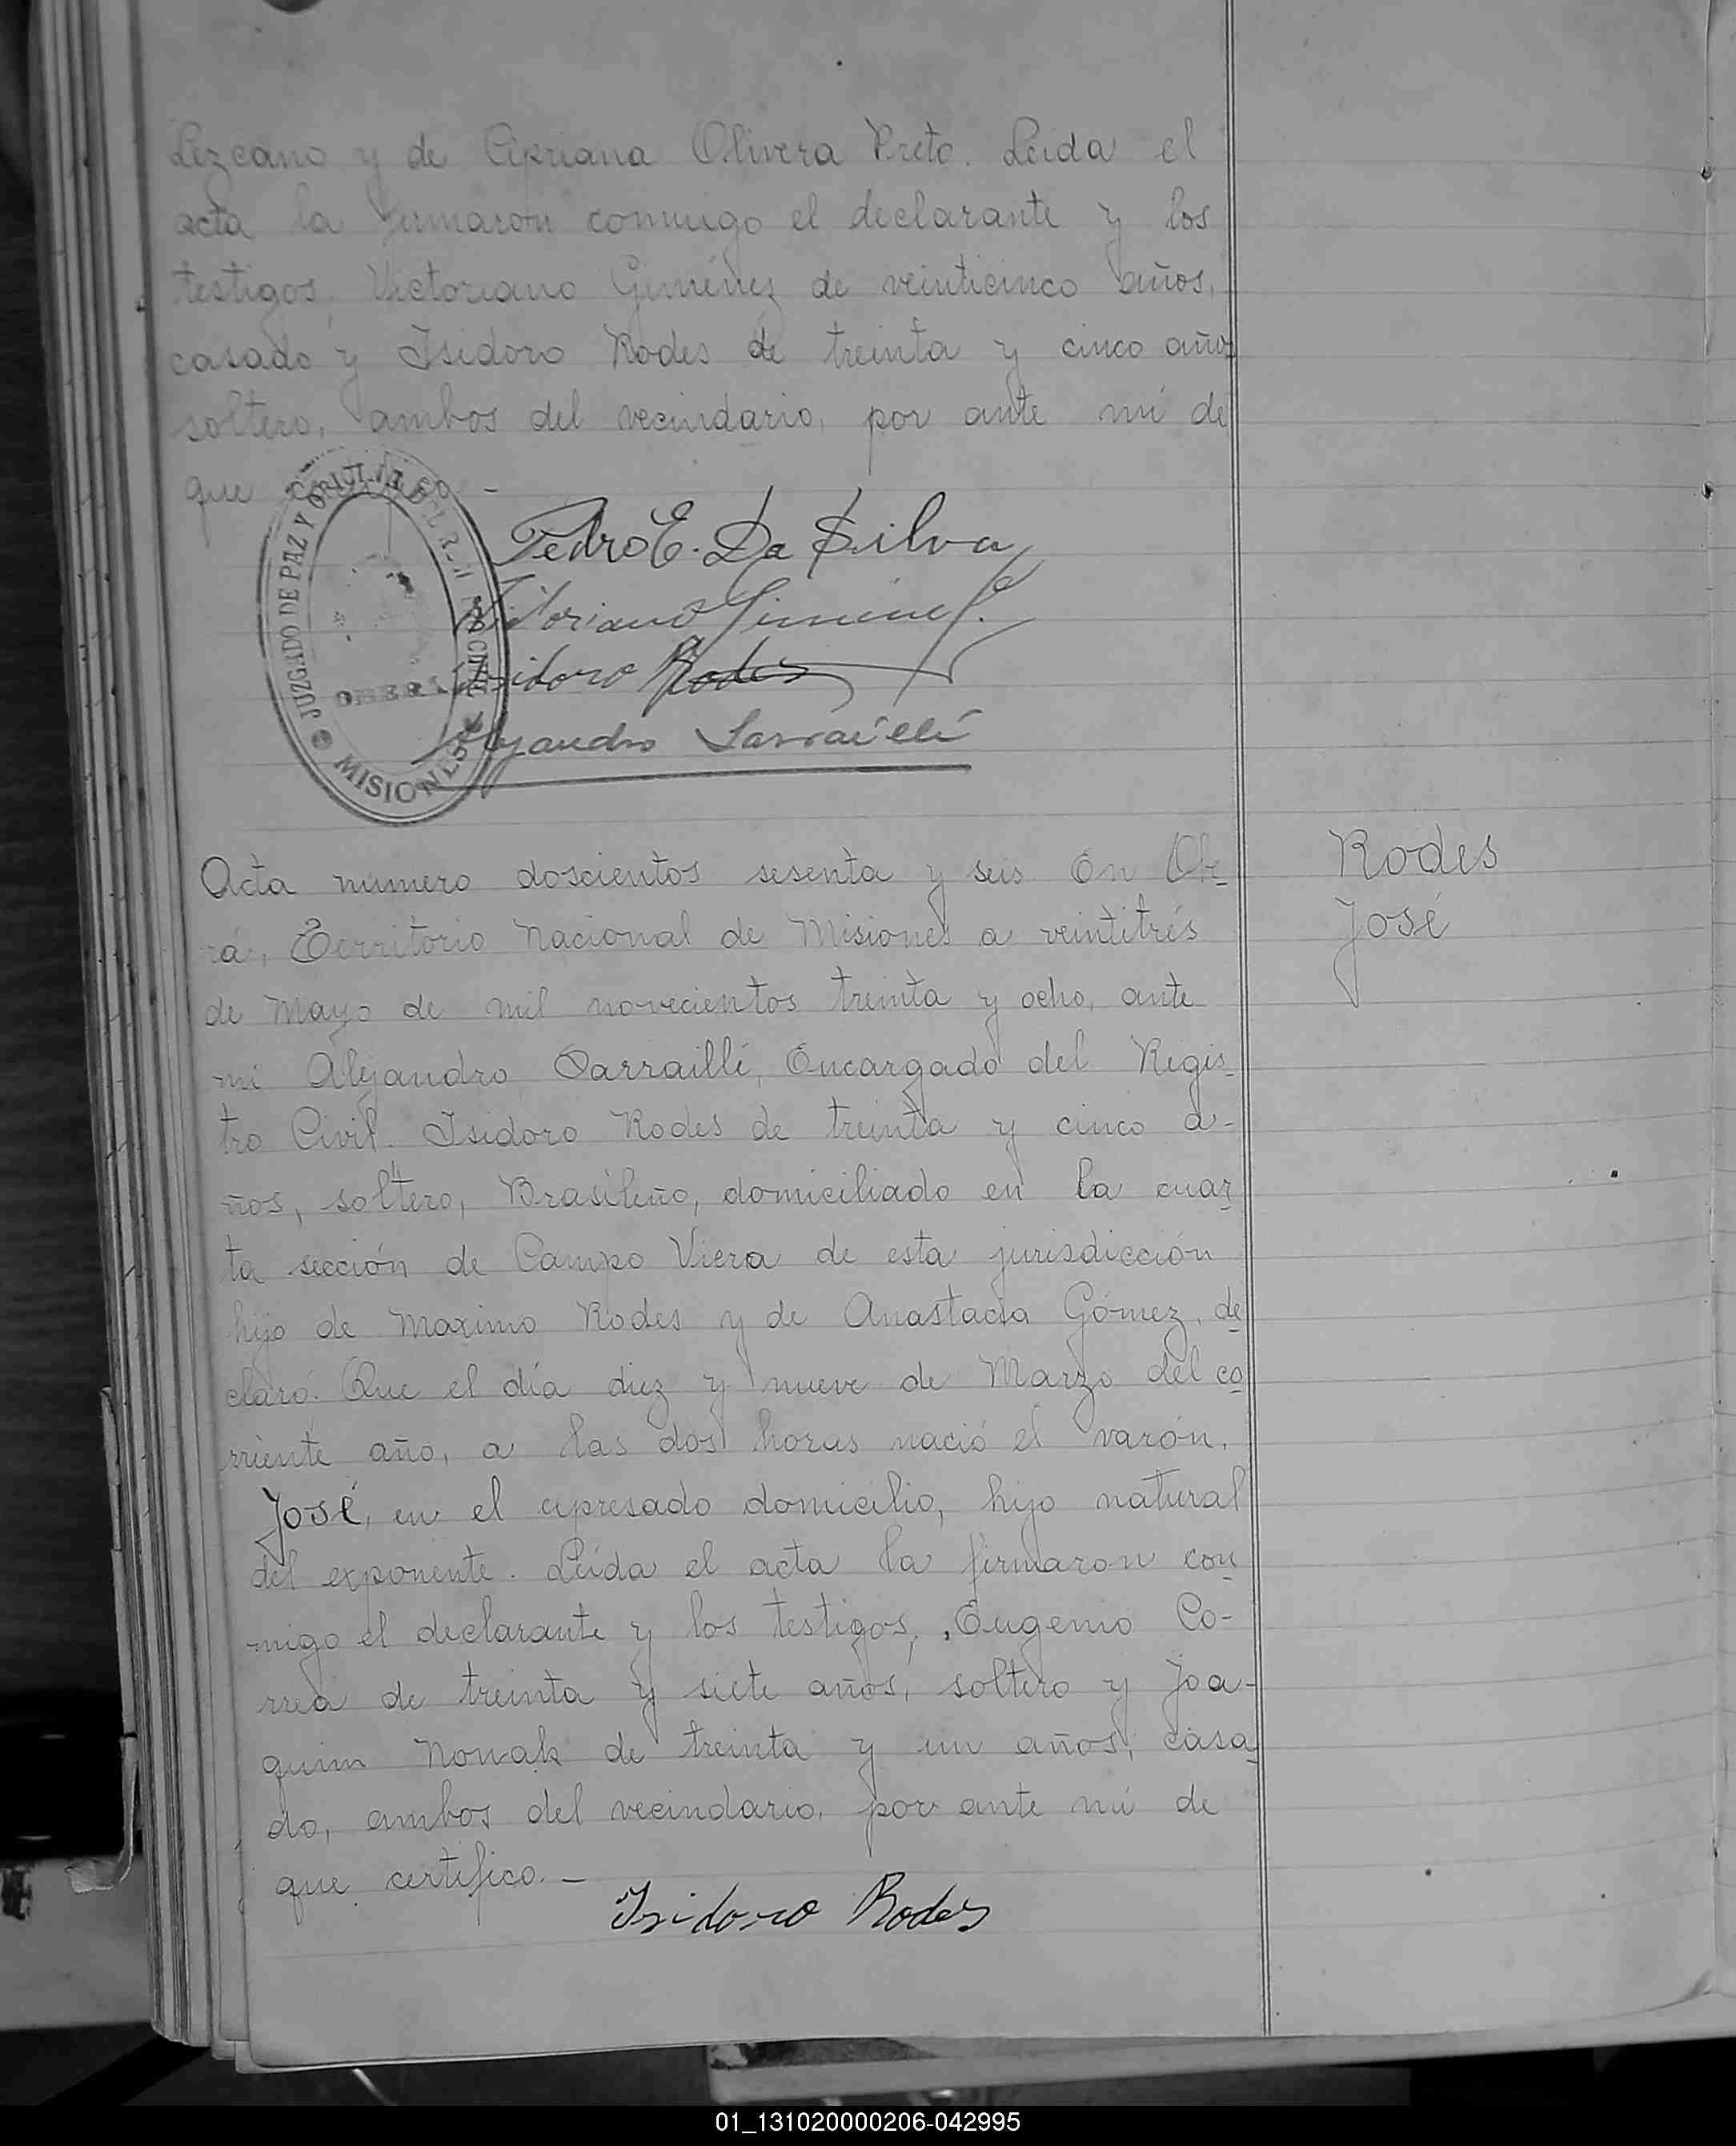 Lezcano y de Cipriana Olivera Preto. Leida el
acta la firmaron conmigo el declarante y los
testigos, Victoriano Giménez de veinticinco años,
casado y Isidoro Rodes de treinta y cinco años
soltero, ambos del vecindario, por ante mí de
que
JUZGADO DE PAZ Y
OBERA
MISIONES
Pedro E. Da Silva
Vitoriano Gimenez
Isidoro Rodes
Alejandro Sarraillé
Acta número doscientos sesenta y seis En Obe-
rá, Territorio Nacional de Misiones a veintitrés
de Mayo de mil novecientos treinta y ocho, ante
mi Alejandro Sarraillé, Encargado del Regis-
tro Civil. Isidoro Rodes de treinta y cinco a-
ños, soltero, Brasileño, domiciliado en la cuar-
ta sección de Campo Viera de esta jurisdicción
hijo de Maximo Rodes y de Anastacia Gómez, de-
claró: Que el día diez y nueve de Marzo del co-
rriente año, a las dos horas nació el varón,
José, en el expresado domicilio, hijo natural
del exponente. Leida el acta la firmaron con-
migo el declarante y los testigos, Eugenio Co-
rrea de treinta y siete años, soltero y Joa-
quim Nowak de treinta y un años, casa-
do, ambos del vecindario, por ante mí de
que certifico.-
Isidoro Rodes
Rodes
José
01_131020000206-042995